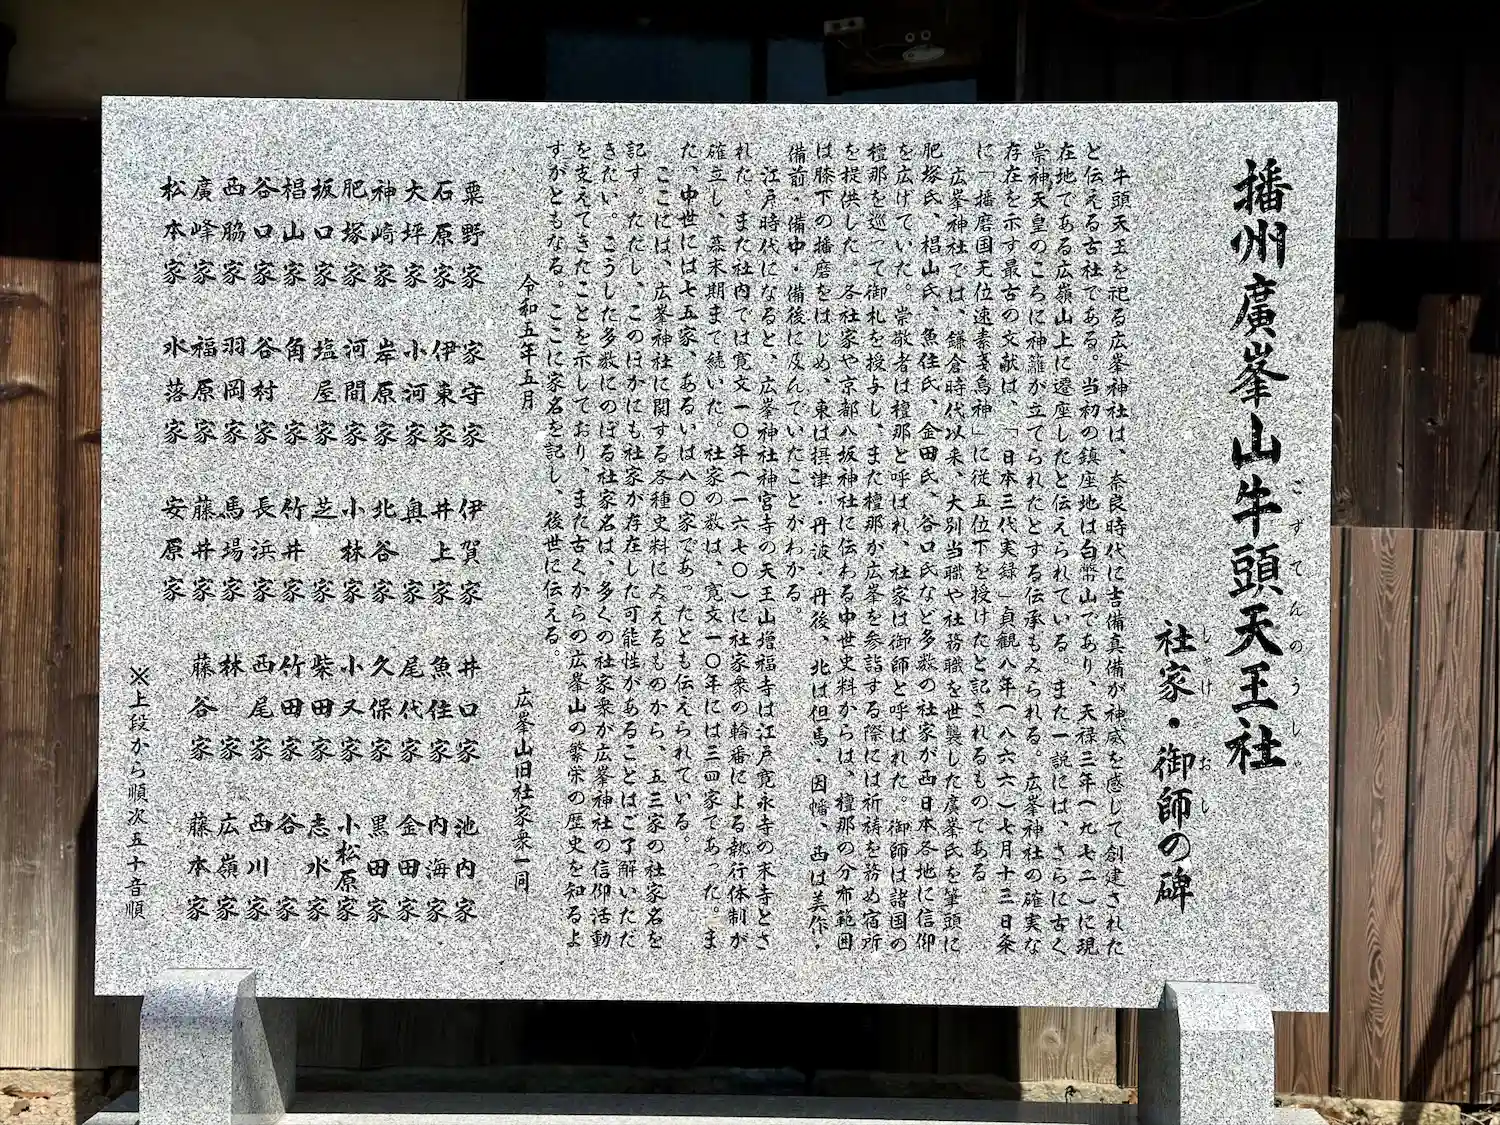 播州廣峯山牛頭天王社
ごずてんのうしゃ
社家・御師の碑
しゃけ おし
牛頭天王を祀る広峯神社は、奈良時代に吉備真備が神威を感じて創建された
と伝える古社である。当初の鎮座地は白幣山であり、天禄三年(九七二)に現
在地である広嶺山上に遷座したと伝えられている。また一説には、さらに古く
崇神天皇のころに神籬が立てられたとする伝承もみられる。広峯神社の確実な
存在を示す最古の文献は、「日本三代実録」貞観八年(八六六)七月十三日条
に「播磨国无位速素戔烏神」に従五位下を授けたと記されるものである。
広峯神社では、鎌倉時代以来、大別当職や社務職を世襲した廣峯氏を筆頭に
肥塚氏、椙山氏、魚住氏、金田氏、谷口氏など多数の社家が西日本各地に信仰
を広げていた。崇敬者は檀那と呼ばれ、社家は御師と呼ばれた。御師は諸国の
檀那を巡って御札を授与し、また檀那が広峯を参詣する際には祈祷を務め宿所
を提供した。各社家や京都八坂神社に伝わる中世史料からは、檀那の分布範囲
は膝下の播磨をはじめ、東は摂津・丹波・丹後、北は但馬・因幡、西は美作・
備前・備中・備後に及んでいたことがわかる。
江戸時代になると、広峯神社神宮寺の天王山増福寺は江戸寛永寺の末寺とさ
れた。また社内では寛文一〇年(一六七〇)に社家衆の輪番による執行体制が
確立し、幕末期まで続いた。社家の数は、寛文一〇年には三四家であった。ま
た、中世には七五家、あるいは八〇家であったとも伝えられている。
ここには、広峯神社に関する各種史料にみえるものから、五三家の社家名を
記す。ただし、このほかにも社家が存在した可能性があることはご了解いただ
きたい。こうした多数にのぼる社家名は、多くの社家衆が広峯神社の信仰活動
を支えてきたことを示しており、また古くからの広峯山の繁栄の歴史を知るよ
すがともなる。ここに家名を記し、後世に伝える。
令和五年五月 広峯山旧社家衆一同
粟野家 家守家 伊賀家 井口家 池内家
石原家 伊東家 井上家 魚住家 内海家
大坪家 小河家 奥家 尾代家 金田家
神崎家 岸原家 北谷家 久保家 黒田家
肥塚家 河間家 小林家 小又家 小松原家
坂口家 塩屋家 芝家 柴田家 志水家
椙山家 角家 竹井家 竹田家 谷家
谷口家 谷村家 長浜家 西尾家 西川家
西脇家 羽岡家 馬場家 林家 広嶺家
廣峰家 福原家 藤井家 藤谷家 藤本家
松本家 水落家 安原家
※上段から順次五十音順